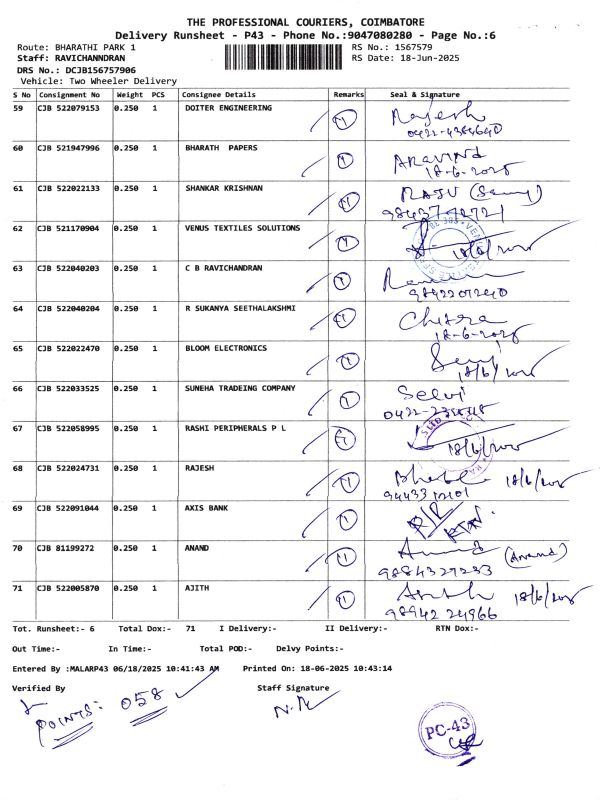 THE PROFESSIONAL COURIERS, COIMBATORE
Delivery Runsheet - P43 - Phone No.:9047080280 - Page No.:6
Route: BHARATHI PARK 1 RS No.: 1567579
Staff: RAVICHANNDRAN RS Date: 18-Jun-2025
DRS No.: DCJB156757906
Vehicle: Two Wheeler Delivery
S No Consignment No Weight PCS Consignee Details Remarks Seal & Signature
59 CJB 522079153 0.250 1 DOITER ENGINEERING Rajesh
60 CJB 521947996 0.250 1 BHARATH PAPERS ARAVIND
18-6-2025
61 CJB 522022133 0.250 1 SHANKAR KRISHNAN RAJU
62 CJB 521170904 0.250 1 VENUS TEXTILES SOLUTIONS
63 CJB 522040203 0.250 1 C B RAVICHANDRAN
9842207240
64 CJB 522040204 0.250 1 R SUKANYA SEETHALAKSHMI Chitra
18-6-2025
65 CJB 522022470 0.250 1 BLOOM ELECTRONICS
66 CJB 522033525 0.250 1 SUNEHA TRADEING COMPANY Selvi
67 CJB 522058995 0.250 1 RASHI PERIPHERALS P L
68 CJB 522024731 0.250 1 RAJESH
69 CJB 522091044 0.250 1 AXIS BANK
70 CJB 81199272 0.250 1 ANAND Anand (Anand)
9884327233
71 CJB 522005870 0.250 1 AJITH
98942 24966
Tot. Runsheet:- 6 Total Dox:- 71 I Delivery:- II Delivery:- RTN Dox:-
Out Time:- In Time:- Total POD:- Delvy Points:-
Entered By :MALARP43 06/18/2025 10:41:43 AM Printed On: 18-06-2025 10:43:14
Verified By Staff Signature
POINTS: 058
PC-43